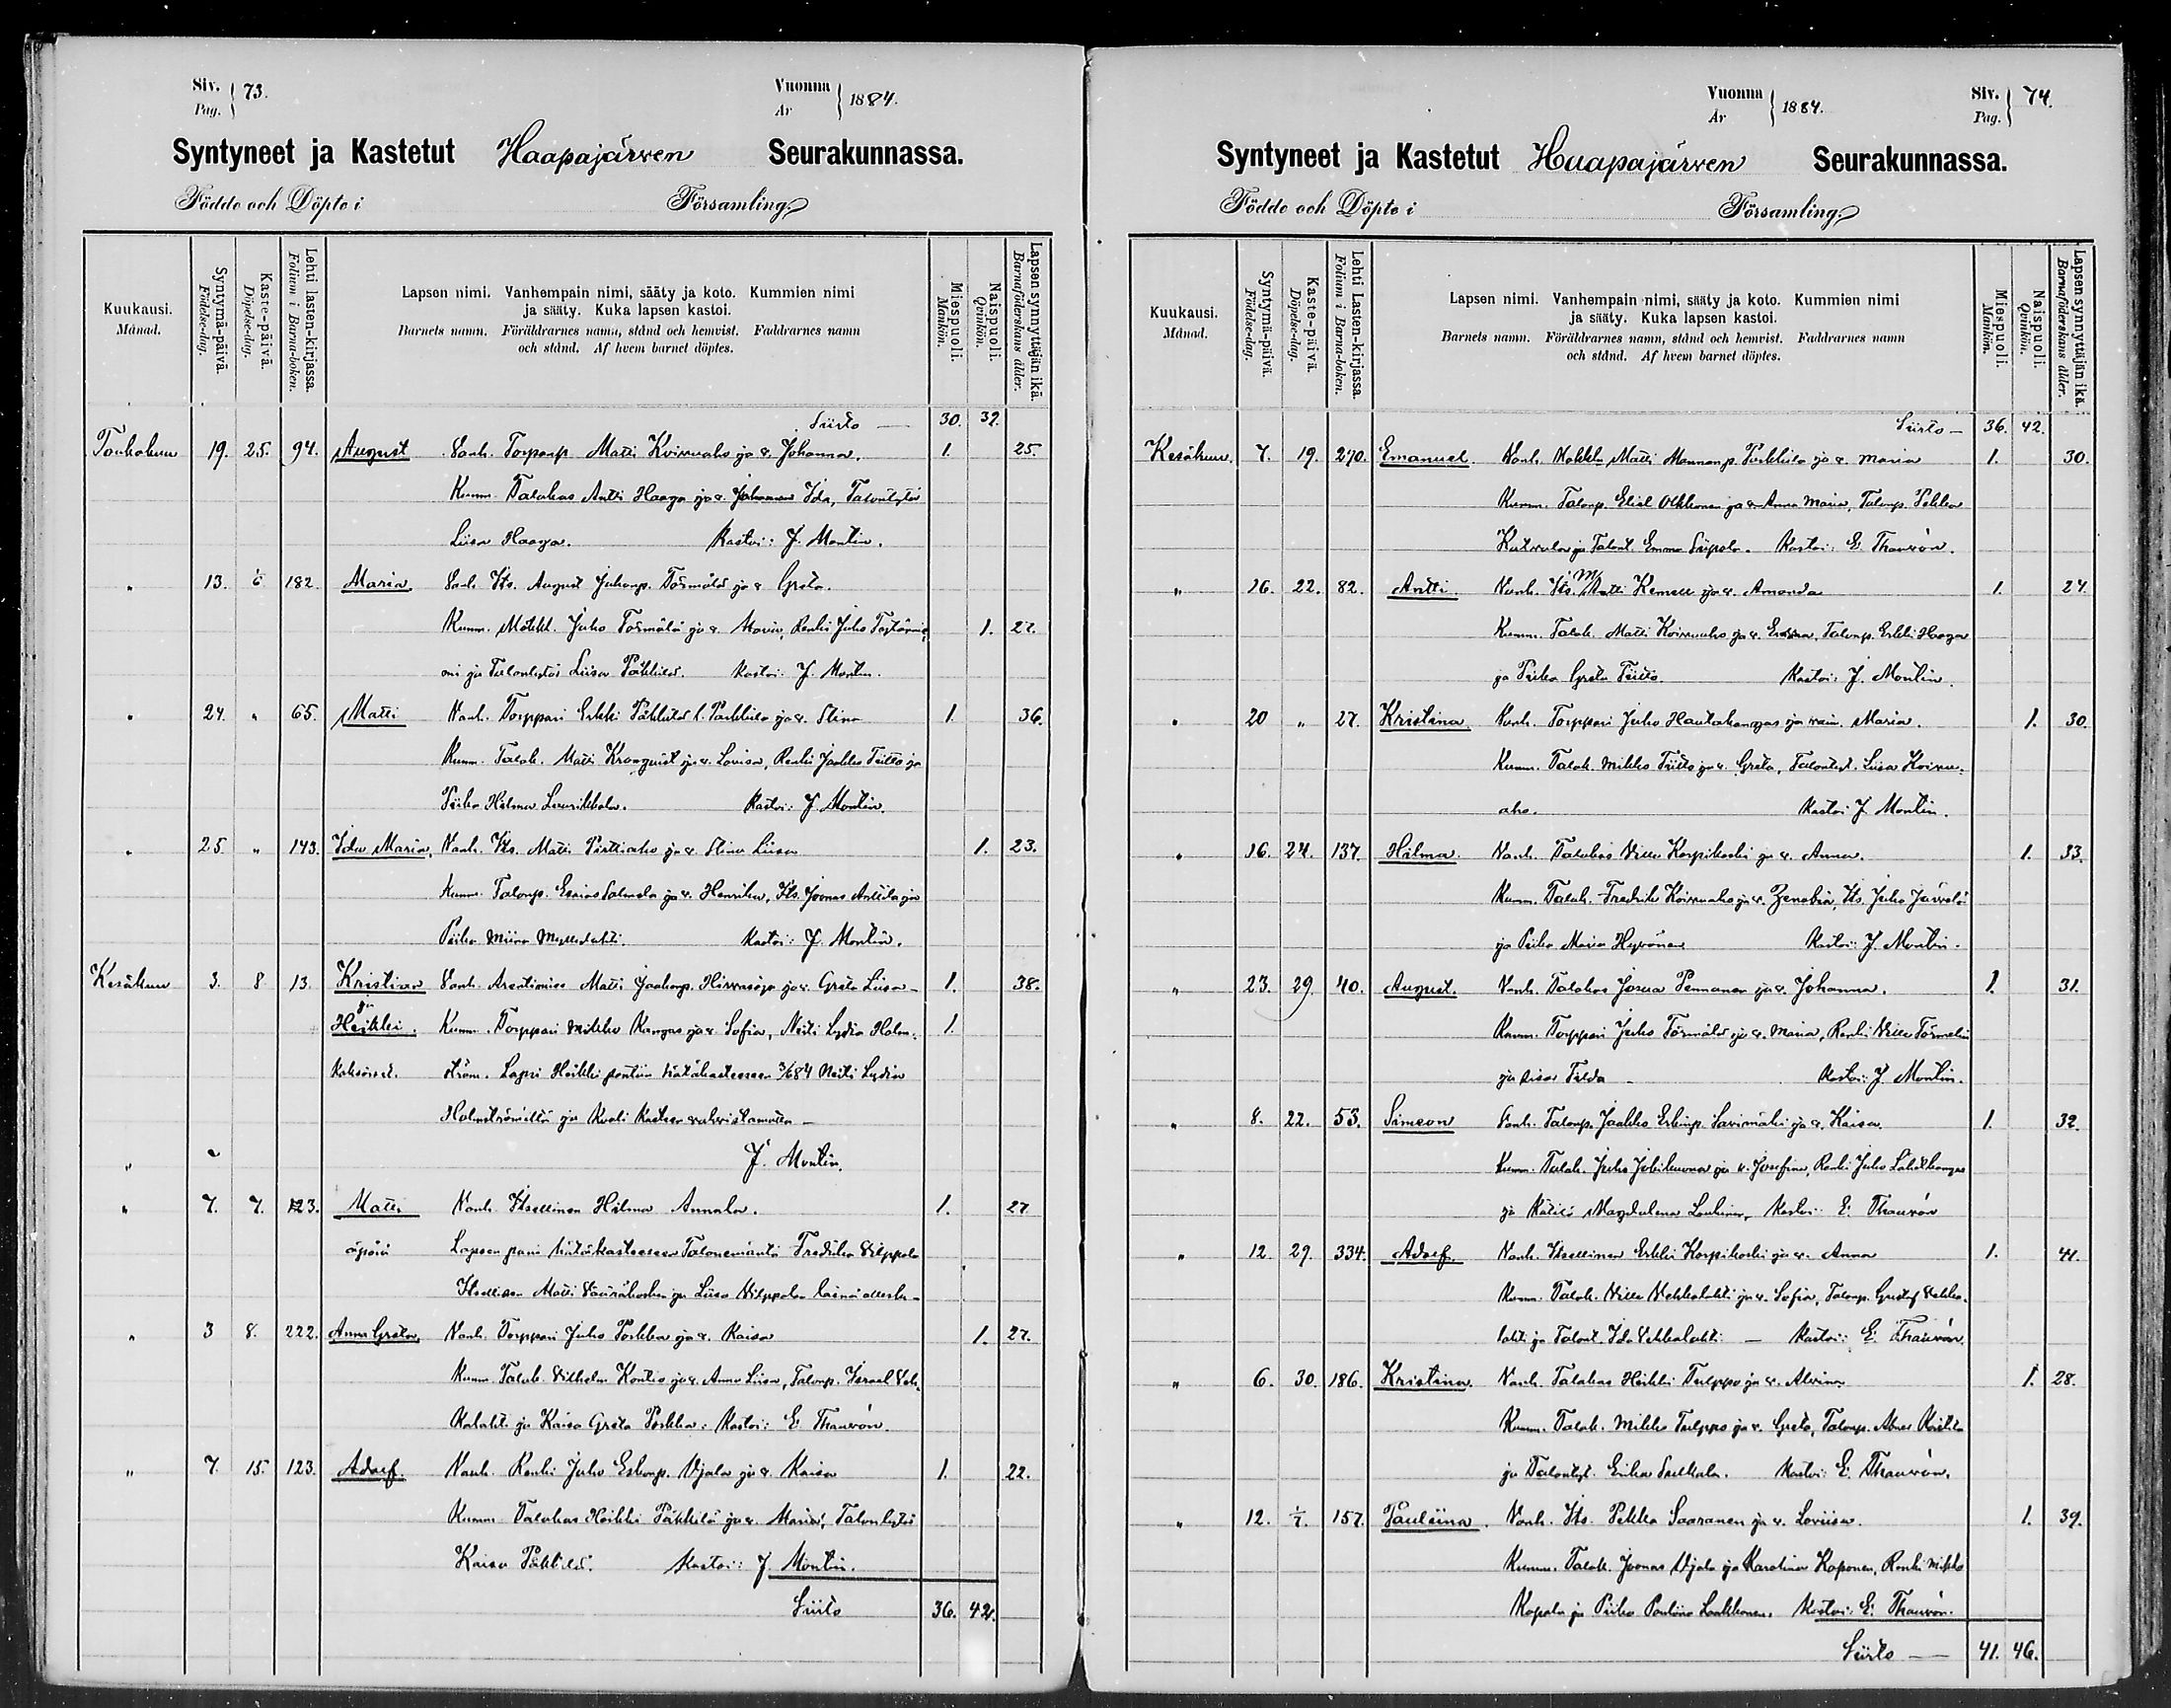 Siv. Pag. } 73.
Vuonna År } 1884.
Syntyneet ja Kastetut Haapajärwen Seurakunnassa.
Födde och Döpte i Församling.
Kuukausi. Månad.
Syntymä-päivä. Födelse-dag.
Kaste-päivä. Döpelse-dag.
Lehti lasten-kirjassa. Folium i Barna-boken.
Lapsen nimi. Vanhempain nimi, sääty ja koto. Kummien nimi
ja sääty. Kuka lapsen kastoi.
Barnets namn. Föräldrarnes namn, stånd och hemvist. Faddrarnes namn
och stånd. Af hvem barnet döptes.
Miespuoli. Mankön.
Naispuoli. Qvinkön.
Lapsen synnyttäjän ikä. Barnaföderskans ålder.
Siirto — 30. 32.
Toukokuu 19. 25. 94. August Vanh. Torparip. Matti Koiwuaho ja v. Johanna. 1. 25.
Kumm. Talokas Antti Haaga ja v. Ida, Talontytär
Liisa Haaga. Kastoi: J. Montin.
" 13. 182. Maria Vanh. Its. August Juhonp. Törmälä ja v. Greta.
Kumm. Mökkl. Juho Törmälä ja v. Maria, Renki Juho 1. 22.
ja Talontytär Liisa Päkkilä. Kastoi: J. Montin.
" 24. " 65. Matti Vanh. Torppari Erkki Päkkilä l. Parkkila ja v. Stina 1. 36.
Kumm. Talok. Matti Kronquist ja v. Lovisa, Renki Jaakko Tiitto ja
Piika Hilma Laurikkala. Kastoi: J. Montin.
" 25 " 143. Ida Maria, Vanh. Its. Matti Pirttiaho ja v. Stina Liisa 1. 23.
Kumm. Talonp. Esaias Salmela ja v. Henrika, Its. Joonas Anttila ja
Piika Miina Myllylahti. Kastoi: J. Montin.
Kesäkuu 3. 8 13. Kristian Vanh. Matti Jaakonp. Hirwasoja ja v. Greta Liisa — 1. 38.
ja
Heikki. Kumm. Torppari Mikko Kangas ja v. Sofia, Neiti Lydia Holm- 1.
Kaksoiset. ström. Lapsi Heikki pantiin hätäkasteeseen 3/6 84 Neiti Lydia
Holmströmiltä ja kuoli kasteen vahvistamatta —
J. Montin.
" 7. 7. 123. Matti Vanh. Itsellinen Hilma Annala. 1. 27
äpärä Lapsen pani hätäkasteeseen Talonemäntä Fredrika Wilppola
Itsellisen Matti ja Liisa Wilppolan läsnä ollessa —
" 3 8. 222. Anna Greta Vanh. Torppari Juho Porkka ja v. Kaisa 1. 27.
Kumm. Talok. Vilhelm Kontio ja v. Anna Liisa, Talonp. Israel Veh-
kalahti ja Kaisa Greta Porkka. Kastoi: E. Thauvón.
" 7. 15. 123. Adolf. Vanh. Renki Juho Eskonp. Ujala ja v. Kaisa 1. 22.
Kumm. Talokas Heikki Päkkilä ja v. Maria, Talontytär
Kaisa Päkkilä. Kastoi: J. Montin.
Siirto 36. 42.
Vuonna År } 1884.
Siv. Pag. } 74.
Syntyneet ja Kastetut Haapajärwen Seurakunnassa.
Födde och Döpte i Församling.
Kuukausi. Månad.
Syntymä-päivä. Födelse-dag.
Kaste-päivä. Döpelse-dag.
Lehti Lasten-kirjassa. Folium i Barna-boken.
Lapsen nimi. Vanhempain nimi, sääty ja koto. Kummien nimi
ja sääty. Kuka lapsen kastoi.
Barnets namn. Föräldrarnes namn, stånd och hemvist. Faddrarnes namn
och stånd. Af hvem barnet döptes.
Miespuoli. Mankön.
Naispuoli. Qvinkön.
Lapsen synnyttäjän ikä. Barnaföderskans ålder.
Siirto — 36. 42.
Kesäkuu. 7. 19. 270. Emanuel. Vanh. Matti Mannonp. Parkkila ja v. Maria 1. 30.
Kumm. Talonp. Elias Olkkonen ja v. Anna Maria, Talonp. Pekka
ja Talont. Emma Siipola. Kastoi: E. Thauvón.
" 16. 22. 82. Antti. Vanh. Its. Matti Kemell ja v. Amanda 1. 24.
Kumm. Talok. Matti Koiwuaho ja v. Talonp. Erkki Haaga
ja Piika Greta Tiitto. Kastoi: J. Montin.
" 20 " 27. Kristina Vanh. Torppari Juho Hautakangas ja vaim. Maria. 1. 30.
Kumm. Talok. Mikko Tiitto ja v. Greta, Talontyt. Liisa Koiwu-
aho. Kastoi J. Montin.
" 16. 24. 137. Hilma. Vanh. Talokas Wille Korpikoski ja v. Anna. 1. 33.
Kumm. Talok. Fredrik Koiwuaho ja v. Zenobia, Its. Juho Järvelä
ja Piika Maria Hyvönen Kastoi: J. Montin.
" 23. 29. 40. August. Vanh. Talokas Josua Pennanen ja v. Johanna. 1. 31.
Kumm. Torppari Juho Törmälä ja v. Maria, Renki Wille Törmälä
ja sisar Tilda — Kastoi: J. Montin.
" 8. 22. 53. Simeon Vanh. Talonp. Jaakko Erkinp. Savimäki ja v. Kaisa. 1. 32.
Kumm. Talok. Juho ja v. Josefina, Renki Juho
ja Kätilö Magdalena Kastoi: E. Thauvón
" 12. 29. 334. Adolf. Vanh. Itsellinen Erkki Korpikoski ja v. Anna 1. 41.
Kumm. Talok. Wille Wehkalahti ja v. Sofia, Talonp. Gustaf Vehka-
lahti ja Talont. Ida Vehkalahti — Kastoi: E. Thauvón.
" 6. 30. 186. Kristina. Vanh. Talokas Heikki Tulppo ja v. Alvina 1. 28.
Kumm. Talok. Mikko Tulppo ja v. Greta, Talonp. Abner
ja Talontyt. Erika Kastoi: E. Thauvón.
" 12. 1/7. 157. Pauliina. Vanh. Its. Pekka Saaranen ja v. Loviisa. 1. 39.
Kumm. Talok. Joonas Ujala ja Karolina Kaponen, Renki Mikko
Kopala ja Piika Pauliina Laukkonen. Kastoi: E. Thauvón.
Siirto — 41. 46.